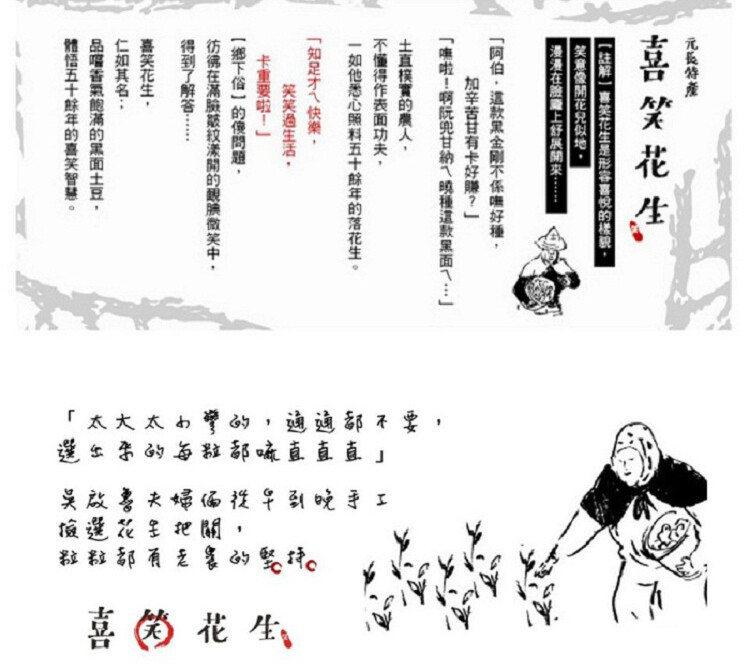 元長特產
喜笑花生
【註解】喜笑花生是形容喜悅的樣貌，
笑意像開花兒似地，
漫漫在臉龐上舒展開來……
「阿伯，這款黑金剛不係嘸好種，
加辛苦甘有卡好賺？」
「嘸啦！啊阮兜甘納ㄟ曉種這款黑面ㄟ…」
土直樸實的農人，
不懂得作表面功夫，
一如他悉心照料五十餘年的落花生。
「知足才ㄟ快樂，
笑笑過生活，
卡重要啦！」
【鄉下俗】的傻問題，
彷彿在滿臉皺紋漾開的靦腆微笑中，
得到了解答……
喜笑花生，
仁如其名；
品嚐香氣飽滿的黑面土豆，
體悟五十餘年的喜笑智慧。
「太大太小彎的，通通都不要，
選出來的每粒都嘛直直直」
吳啟魯夫婦倆從早到晚手工
撿選花生把關，
粒粒都有老農的堅持。
喜笑花生